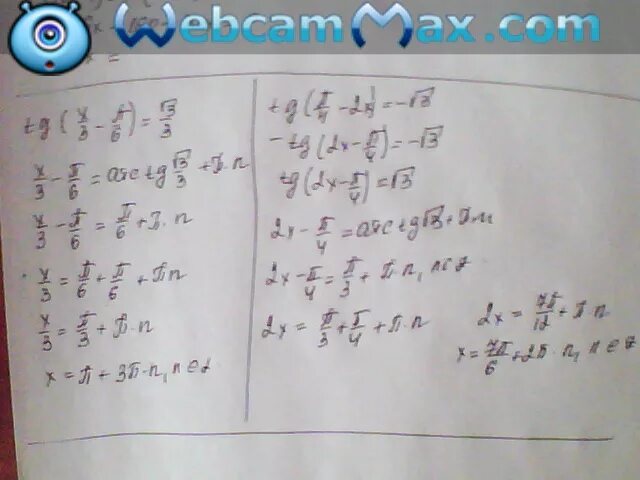 WebcamMax.com
x =
tg(x/3 - π/6) = √3/3
x/3 - π/6 = arctg √3/3 + π·n
x/3 - π/6 = π/6 + π·n
x/3 = π/6 + π/6 + πn
x/3 = π/3 + π·n
x = π + 3π·n, n ∈ Z
tg(π/4 - 2x) = -√3
-tg(2x - π/4) = -√3
tg(2x - π/4) = √3
2x - π/4 = arctg √3 + π·n
2x - π/4 = π/3 + π·n, n ∈ Z
2x = π/3 + π/4 + π·n
2x = 7π/12 + π·n
x = 7π/6 + 2π·n, n ∈ Z